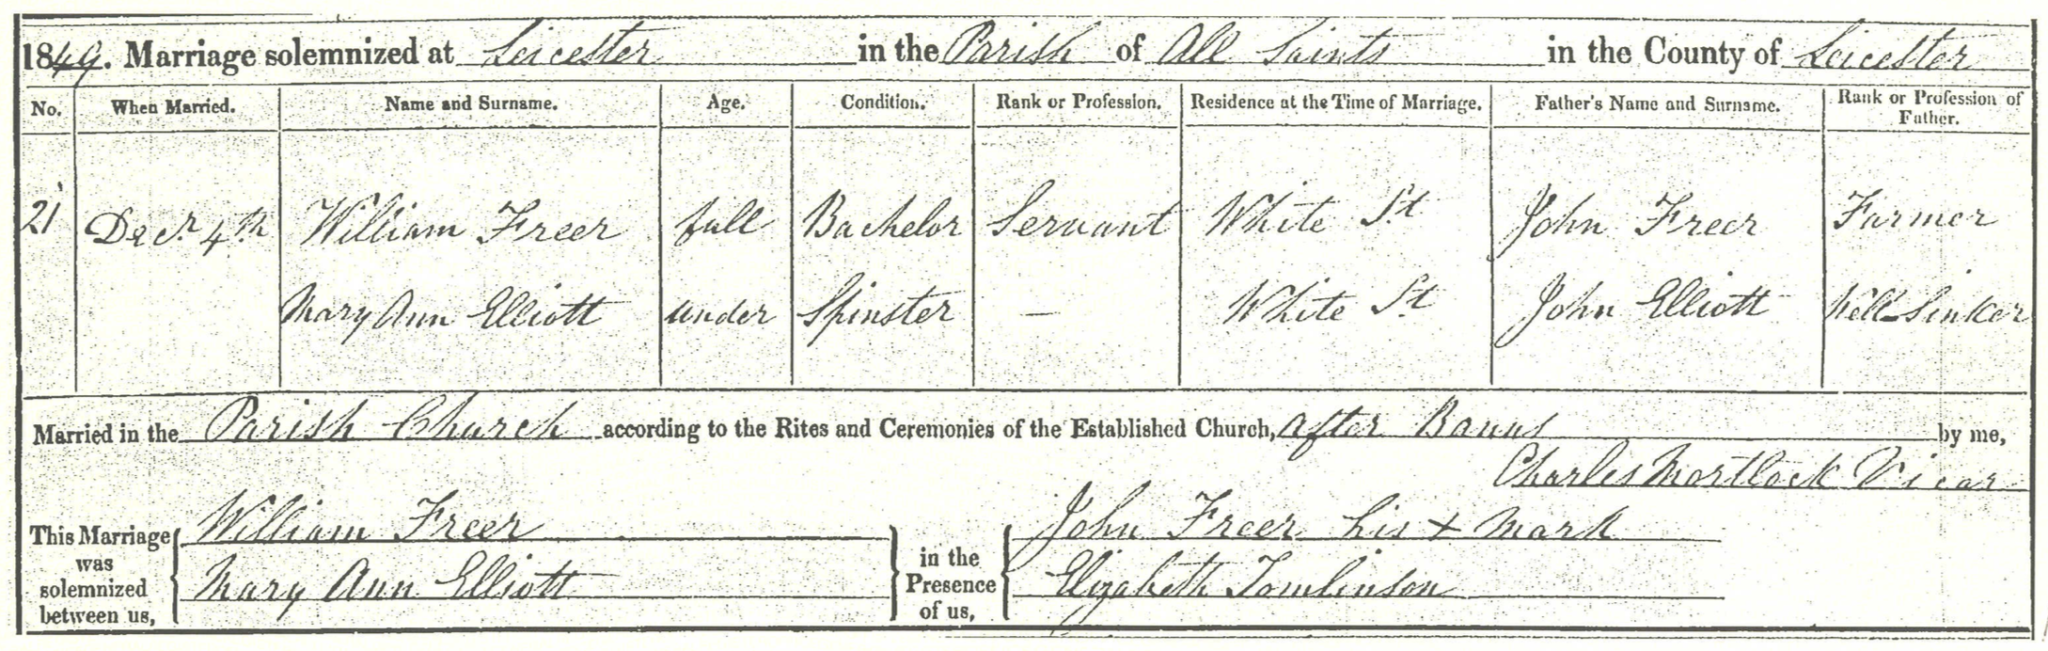 1849. Marriage solemnized at Leicester in the Parish of All Saints in the County of Leicester
No. When Married. Name and Surname. Age. Condition. Rank or Profession. Residence at the Time of Marriage. Father's Name and Surname. Rank or Profession of Father.
21 Decr. 4th William Freer full Bachelor Servant White St John Freer Farmer
Mary Ann Elliott under Spinster — White St John Elliott Well-Sinker
Married in the Parish Church according to the Rites and Ceremonies of the Established Church, after Banns by me,
Charles Mortlock Vicar
This Marriage was solemnized between us, William Freer Mary Ann Elliott in the Presence of us, John Freer his + mark Elizabeth Tomlinson